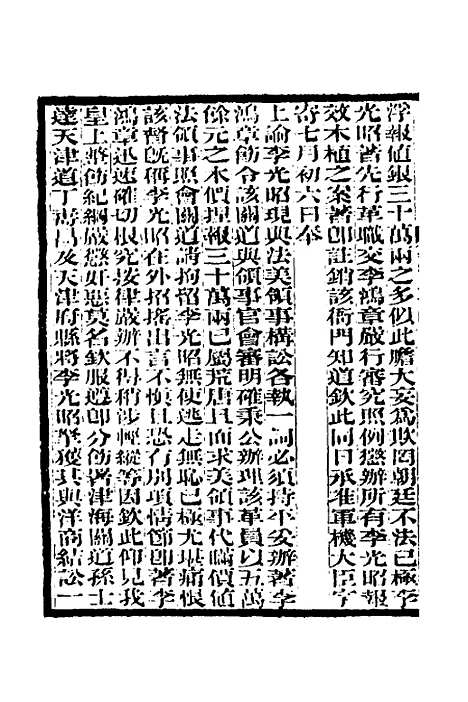 浮報值銀三十萬兩之多似此膽大妄為欺罔朝廷不法已極李
光昭著先行革職交李鴻章嚴行審究照例懲辦所有李光昭報
效木植之案著即註銷該衙門知道欽此同日承准軍機大臣字
寄七月初六日奉
上諭李光昭現與法美領事構訟各執一詞必須持平妥辦著李
鴻章飭令該關道與領事官會審明確秉公辦理該革員以五萬
餘元之木價捏報三十萬兩已屬荒唐且面求美領事代瞞價值
法領事照會關道請拘留李光昭無使逃走無恥已極尤堪痛恨
該督既稱李光昭在外招搖出言不慎且恐有別項情節即著李
鴻章迅速確切根究按律嚴辦不得稍涉輕縱等因欽此仰見我
皇上肅飭紀綱嚴懲奸慝莫名欽服遵即分飭署津海關道孫士
達天津道丁壽昌及天津府縣將李光昭拏獲其與洋商結訟一